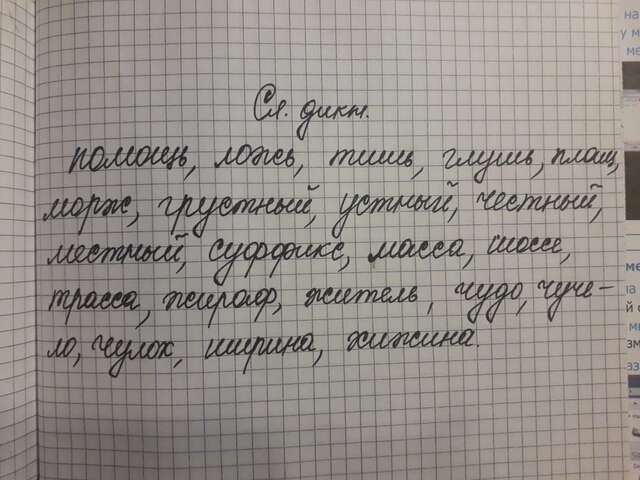 Сл. дикт.
помощь, ложь, тишь, глушь, плащ,
морж, грустный, устный, честный,
местный, суффикс, масса, шоссе,
трасса, жираф, житель, чудо, чуче-
ло, чулок, ширина, хижина.
на
у м
ме